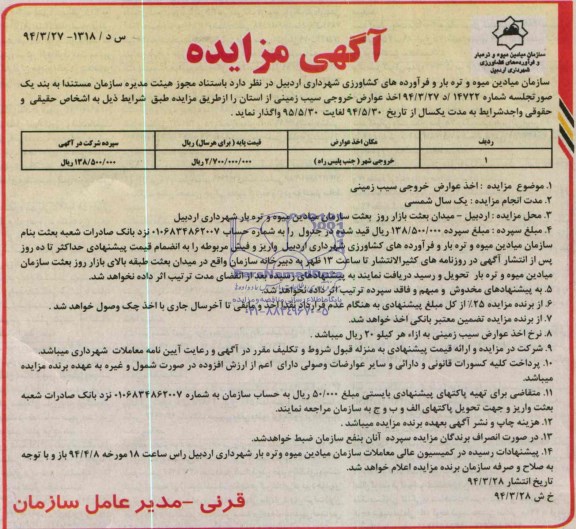 س د / ۱۳۱۸- ۹۴/۳/۲۷
سازمان میادین میوه و تره بار
و فرآورده‌های کشاورزی
شهرداری اردبیل
آگهی مزایده
سازمان میادین میوه و تره بار و فرآورده های کشاورزی شهرداری اردبیل در نظر دارد باستناد مجوز هیئت مدیره سازمان مستندا به بند یک
صورتجلسه شماره ۱۴۷۲۲ /د ۹۴/۳/۲۷ اخذ عوارض خروجی سیب زمینی از استان را ازطریق مزایده طبق شرایط ذیل به اشخاص حقیقی و
حقوقی واجدشرایط به مدت یکسال از تاریخ ۹۴/۵/۳۰ لغایت ۹۵/۵/۳۰ واگذار نماید .
ردیف مکان اخذ عوارض قیمت پایه ( برای هرسال) ریال سپرده شرکت در آگهی
۱ خروجی شهر ( جنب پلیس راه) ۲/۷۰۰/۰۰۰/۰۰۰ ریال ۱۳۸/۵۰۰/۰۰۰ ریال
۱. موضوع مزایده : اخذ عوارض خروجی سیب زمینی
۲. مدت انجام مزایده : یک سال شمسی
۳. محل مزایده : اردبیل - میدان بعثت بازار روز بعثت سازمان میادین میوه و تره بار شهرداری اردبیل
۴. مبلغ سپرده : مبلغ سپرده ۱۳۸/۵۰۰/۰۰۰ ریال قید شده در جدول را به شماره حساب ۰۱۰۶۸۳۴۸۶۲۰۰۷ نزد بانک صادرات شعبه بعثت بنام
سازمان میادین میوه و تره بار و فرآورده های کشاورزی شهرداری اردبیل واریز و فیش مربوطه را به انضمام قیمت پیشنهادی حداکثر تا ده روز
پس از انتشار آگهی در روزنامه های کثیرالانتشار تا ساعت ۱۳ ظهر به دبیرخانه سازمان واقع در میدان بعثت طبقه بالای بازار روز بعثت سازمان
میادین میوه و تره بار تحویل و رسید دریافت نمایند به پیشنهادهای رسیده بعد از انقضای مدت ترتیب اثر داده نخواهد شد.
۵. به پیشنهادهای مخدوش و مبهم و فاقد سپرده ترتیب اثر داده نخواهد شد.
۶. از برنده مزایده ۲۵٪ از کل مبلغ پیشنهادی به هنگام عقد قرارداد نقدا اخذ و مابقی تا آخرسال جاری با اخذ چک وصول خواهد شد .
۷. از برنده مزایده تضمین معتبر بانکی اخذ خواهد شد.
۸. نرخ اخذ عوارض سیب زمینی به ازاء هر کیلو ۲۰ ریال میباشد .
۹. شرکت در مزایده و ارائه قیمت پیشنهادی به منزله قبول شروط و تکلیف مقرر در آگهی و رعایت آیین نامه معاملات شهرداری میباشد.
۱۰. پرداخت کلیه کسورات قانونی و دارائی و سایر عوارضات وصولی دارای اعم از ارزش افزوده در صورت شمول و غیره به عهده برنده مزایده
میباشد.
۱۱. متقاضی برای تهیه پاکتهای پیشنهادی بایستی مبلغ ۵۰/۰۰۰ ریال به حساب سازمان به شماره ۰۱۰۶۸۳۴۸۶۲۰۰۷ نزد بانک صادرات شعبه
بعثت واریز و جهت تحویل پاکتهای الف و ب و ج به سازمان مراجعه نمایند.
۱۲. هزینه چاپ و نشر آگهی بعهده برنده مزایده میباشد .
۱۳. در صورت انصراف برندگان مزایده سپرده آنان بنفع سازمان ضبط خواهدشد.
۱۴. پیشنهادات رسیده در کمیسیون عالی معاملات سازمان میادین میوه وتره بار شهرداری اردبیل راس ساعت ۱۸ مورخه ۹۴/۴/۸ باز و با توجه
به صلاح و صرفه سازمان برنده مزایده اعلام خواهد شد.
تاریخ انتشار ۹۴/۳/۲۸
خ ش ۹۴/۳/۲۸
قرنی -مدیر عامل سازمان